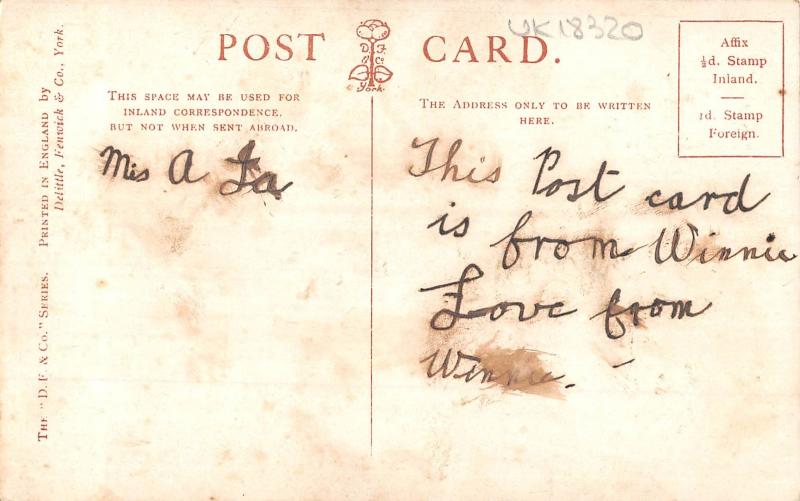 POST CARD.
UK18320
D. F. & Co. York.
Affix
½d. Stamp
Inland.
1d. Stamp
Foreign.
THIS SPACE MAY BE USED FOR
INLAND CORRESPONDENCE,
BUT NOT WHEN SENT ABROAD.
THE ADDRESS ONLY TO BE WRITTEN
HERE.
Mis A
This Post card
is from Winnie
Love from
Winnie.
THE "D. F. & Co." SERIES. PRINTED IN ENGLAND by
Delittle, Fenwick & Co., York.